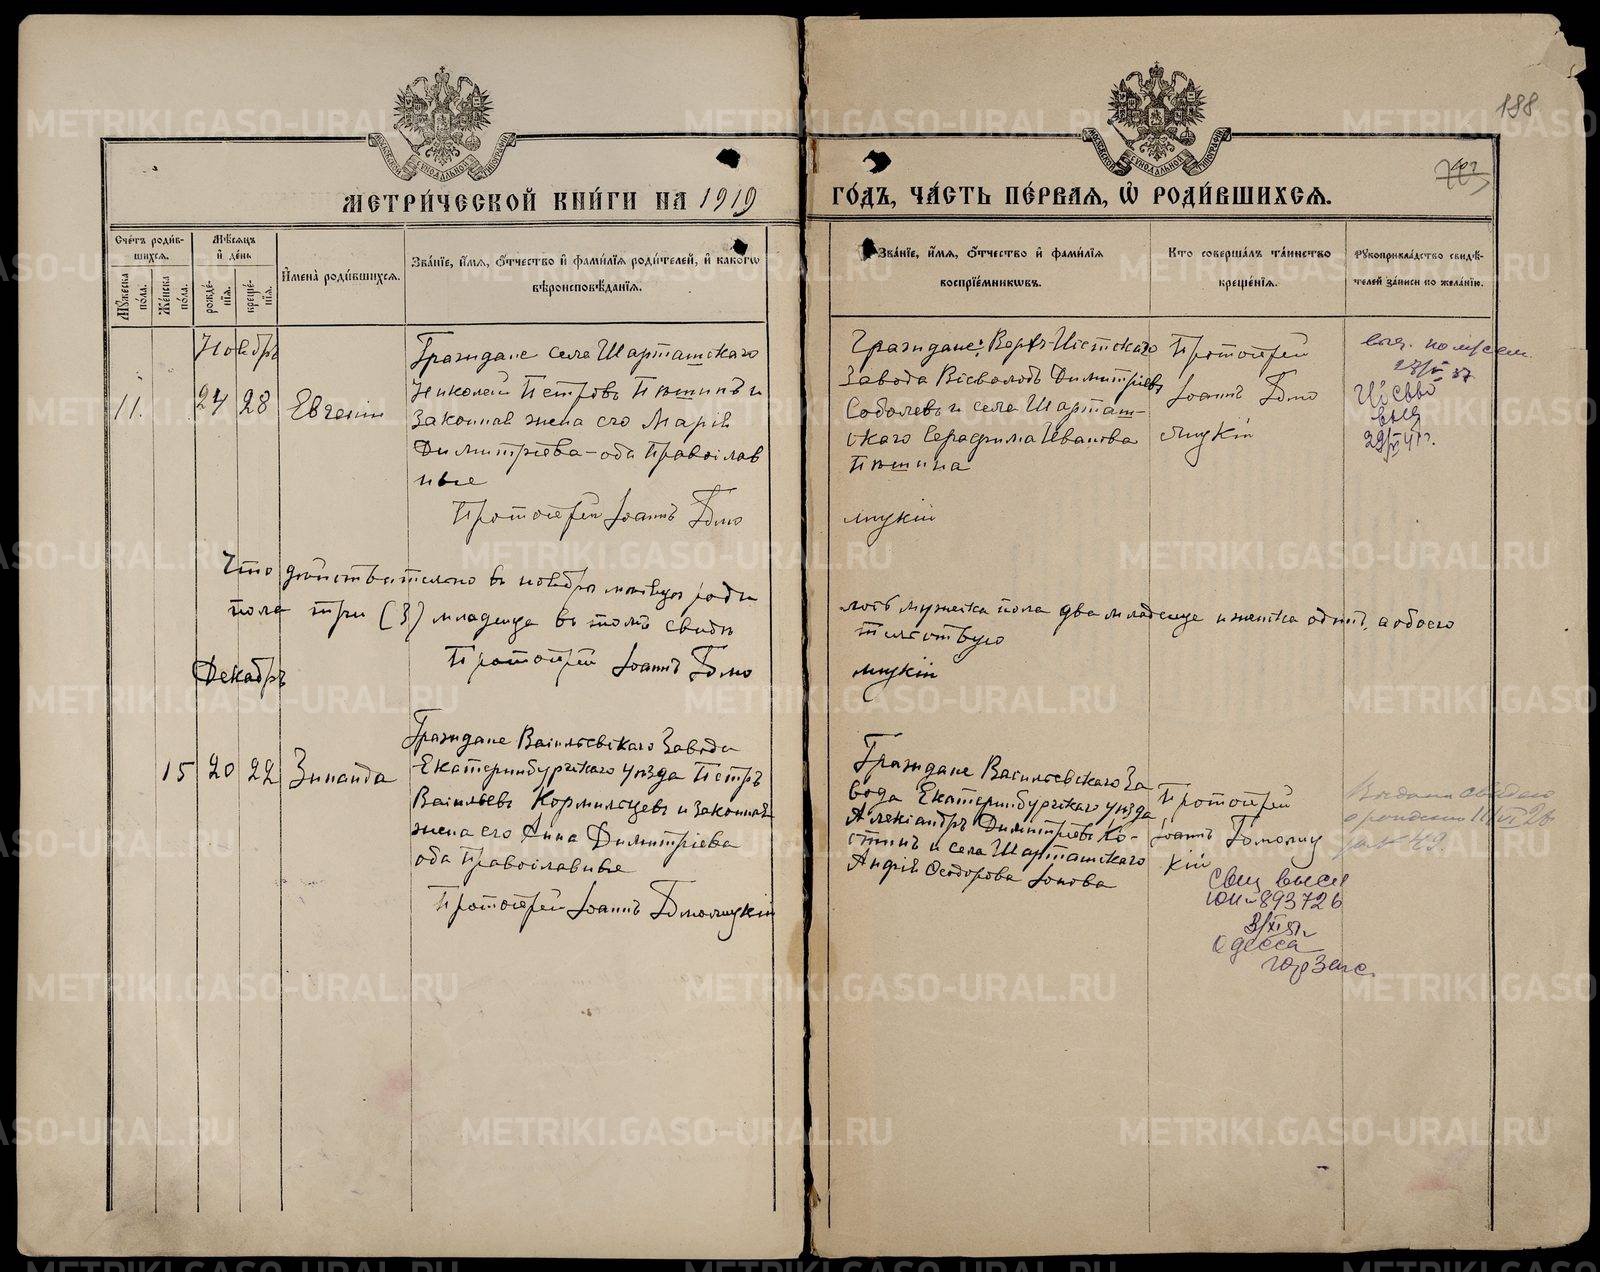 188
МОСКОВСКОЙ СѴНОДАЛЬНОЙ ТИПОГРАФІИ
МОСКОВСКОЙ СѴНОДАЛЬНОЙ ТИПОГРАФІИ
МЕТРИ́ЧЕСКОЙ КНИ́ГИ НА 1919
ГО́ДЪ, ЧА́СТЬ ПЕ́РВАѦ, Ѡ҆ РОДИ́ВШИХСѦ.
Сче́тъ роди́в-
шихсѧ.
Мꙋ́жеска по́ла.
Же́нска по́ла.
Мѣ́сѧцъ
и҆ де́нь
рожде́-
нїѧ.
креще́-
нїѧ.
И҆мена̀ роди́вшихсѧ.
Зва́нїе, и҆́мѧ, ѻ҆́тчество и҆ фами́лїѧ роди́телей, и҆ како́гѡ
вѣроисповѣ́данїѧ.
Зва́нїе, и҆́мѧ, ѻ҆́тчество и҆ фами́лїѧ
воспрїе́мникѡвъ.
Кто соверша́лъ та́инство
креще́нїѧ.
Рꙋкоприкла́дство свидѣ́-
телей за́писи по жела́нїю.
Ноябрь
11. 24 28 Евгеній
Граждане села Шарташскаго
Николай Петровъ Пьшинъ и
законная жена его Марія
Димитріева - оба Православ
ные
Протоіерей Іоаннъ Бмо
Граждане: Верхъ-Исетскаго
завода Всеволодъ Димитріевъ
Соболевъ и села Шарташ-
скаго Серафима Иванова
Пьшина
муцкій
Протоіерей
Іоаннъ Бмо
муцкій
23/V 37
выд
29/VI 41г.
Что дѣйствительно въ ноябрѣ мѣсяцѣ роди
лось мужеска пола два младенца и женска одинъ, а обоего
пола три (3) младенца въ томъ свидѣ
тельствую
Протоіерей Іоаннъ Бмо
муцкій
Декабрь
15 20 22 Зинаида
Граждане Васильевскаго Завода
Екатеринбургскаго уѣзда Петръ
Васильевъ Кормильцевъ и законная
жена его Анна Димитріева
оба православные
Протоіерей Іоаннъ Бмомуцкій
Граждане Васильевскаго За
вода Екатеринбургскаго уѣзда
Александръ Димитріевъ Ко-
стинъ и села Шарташскаго
Ѳеодорова Іонова
Протоіерей
Іоаннъ Бмомуц
кій
Выдано свид
о рожденіи VI 26
за № 49.
Свид выслан
893726
3/XI 51г
Одесса
горЗагс
METRIKI.GASO-URAL.RU